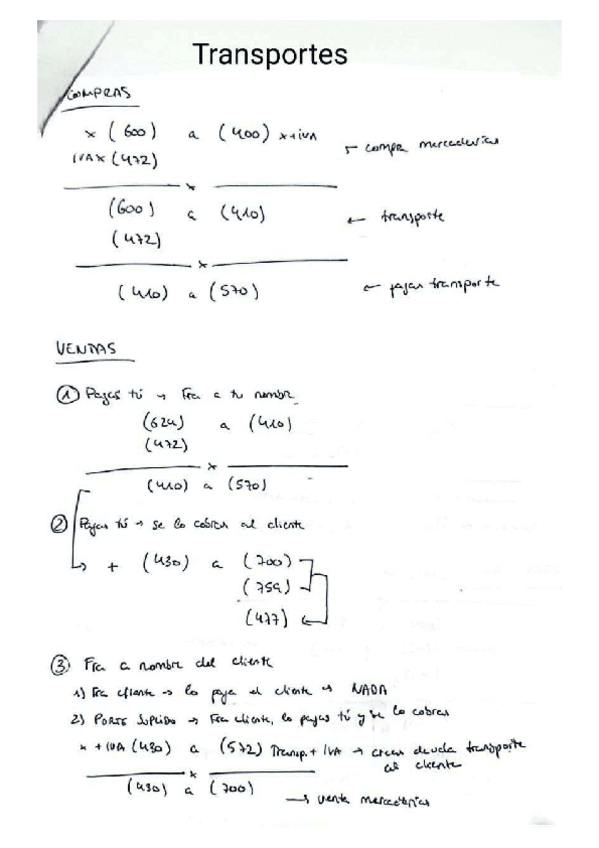 Transportes
COMPRAS
x (600) a (400) x+IVA
IVAX (472) ← compra mercaderías
x
(600) a (410) ← transporte
(472)
x
(410) a (570) ← pagar transporte
VENTAS
① Pagas tú → Fra a tu nombre
(624) a (410)
(472)
x
(410) a (570)
② Pagas tú → se lo cobras al cliente
+ (430) a (700)
(759)
(477)
③ Fra a nombre del cliente
1) Fra cliente → lo paga el cliente → NADA
2) PORTE SUPLIDO → Fra cliente, lo pagas tú y se lo cobras
x + IVA (430) a (572) Transp. + IVA → creas deuda transporte
al cliente
x
(430) a (700)
→ venta mercaderías